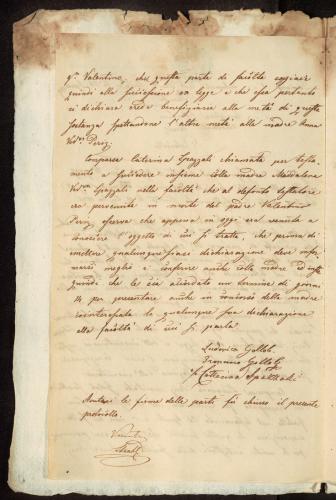 qm Valentino, che questa parte di facoltà soggiace
quindi alla successione ex lege e che essa pertanto
si dichiara erede beneficiaria alla metà di questa
sostanza spettandone l'altra metà alla madre Anna
Ved.a Peroz.
Comparsa Caterina Spazzali chiamata per testa
mento a succedere insieme colla madre Maddalena
Ved.a Spazzali nella facoltà che al defunto testatore
era pervenuta in morte del padre Valentino
Peroz, osserva che appena in oggi era venuta a
conoscere l'oggetto di cui si tratta, che prima di
emettere qualunque siasi dichiarazione deve infor
marsi meglio e conferire anche colla madre
quindi che le sia accordato un termine di giorni
14 per presentare anche in concorso della madre
cointeressata la qualunque sua dichiarazione
alla facoltà di cui si parla
Ludovica
Francesco
Catterina Spazzali
Avutasi le firme delle parti fu chiuso il presente
protocollo.